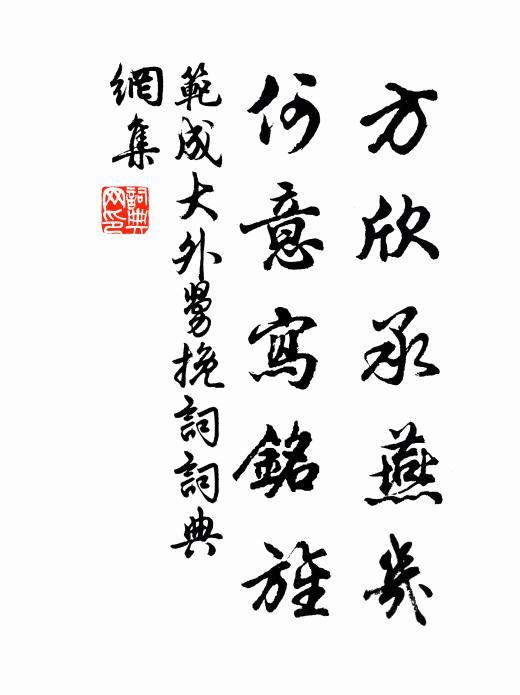 方欣承燕幾
何意寫銘旌
範成大外舅挽詞詞典
網集
詞典
网印